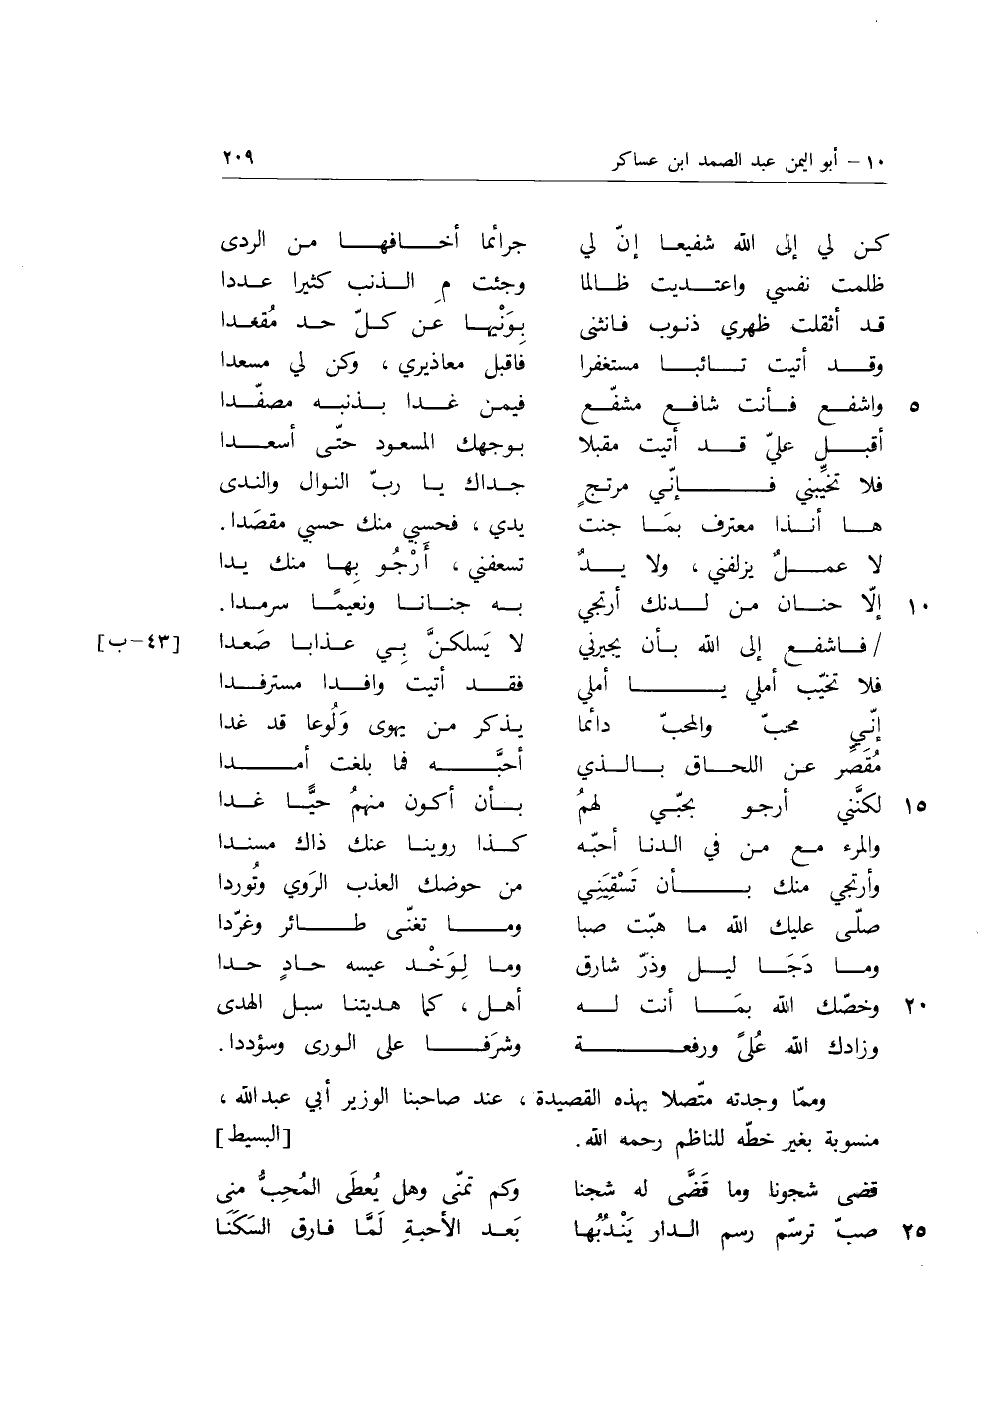 ١٠ – أبو اليمن عبد الصمد ابن عساكر ٢٠٩
كن لي إلى الله شفيعا إنّ لي جرائما أخافها من الردى
ظلمت نفسي واعتديت ظالما وجئت مِ الذنب كثيرا عددا
قد أثقلت ظهري ذنوب فانثنى بِوَنْيها عن كلّ حد مُقعدا
وقد أتيت تائبا مستغفرا فاقبل معاذيري ، وكن لي مسعدا
٥ واشفع فأنت شافع مشفّع فيمن غدا بذنبه مصفّدا
أقبل عليّ قد أتيت مقبلا بوجهك المسعود حتّى أسعدا
فلا تخيّبني فإنّي مرتجٍ جداك يا ربّ النوال والندى
ها أنذا معترف بما جنت يدي ، فحسبي منك حسبي مقصدا .
لا عملٌ يزلفني ، ولا يدٌ تسعفني ، أَرْجُو بها منك يدا
١٠ إلّا حنان من لدنك أرتجي به جنانا ونعيمًا سرمدا .
/ فاشفع إلى الله بأن يجيرني لا يَسلكنَّ بِي عذابا صَعدا [٤٣–ب]
فلا تخيّب أملي يا أملي فقد أتيت وافدا مسترفدا
إنّي محبّ والمحبّ دائما يذكر من يهوى وَلُوعا قد غدا
مُقَصِّر عن اللحاق بالذي أحبَّه فما بلغت أمدا
١٥ لكنّني أرجو بحبّي لهمُ بأن أكون منهمُ حيًّا غدا
والمرء مع من في الدنا أحبّه كذا روينا عنك ذاك مسندا
وأرتجي منك بأن تَسْقِيَنِي من حوضك العذب الرَوي وتُوردا
صلّى عليك الله ما هبّت صبا وما تغنّى طائر وغرّدا
وما دَجَا ليل وذرّ شارق وما لِوَخْد عيسه حادٍ حدا
٢٠ وخصّك الله بما أنت له أهل ، كما هديتنا سبل الهدى
وزادك الله عُلىً ورفعة وشرَفا على الورى وسؤددا .
وممّا وجدته متّصلا بهذه القصيدة ، عند صاحبنا الوزير أبي عبدالله ،
منسوبة بغير خطّه للناظم رحمه الله . [البسيط]
قضى شجونا وما قَضَّى له شجنا وكم تمنّى وهل يُعطَى المُحِبُّ منى
٢٥ صبّ ترسّم رسم الدار يَنْدُبُها بَعد الأحبةِ لَمَّا فارق السَكَنَا